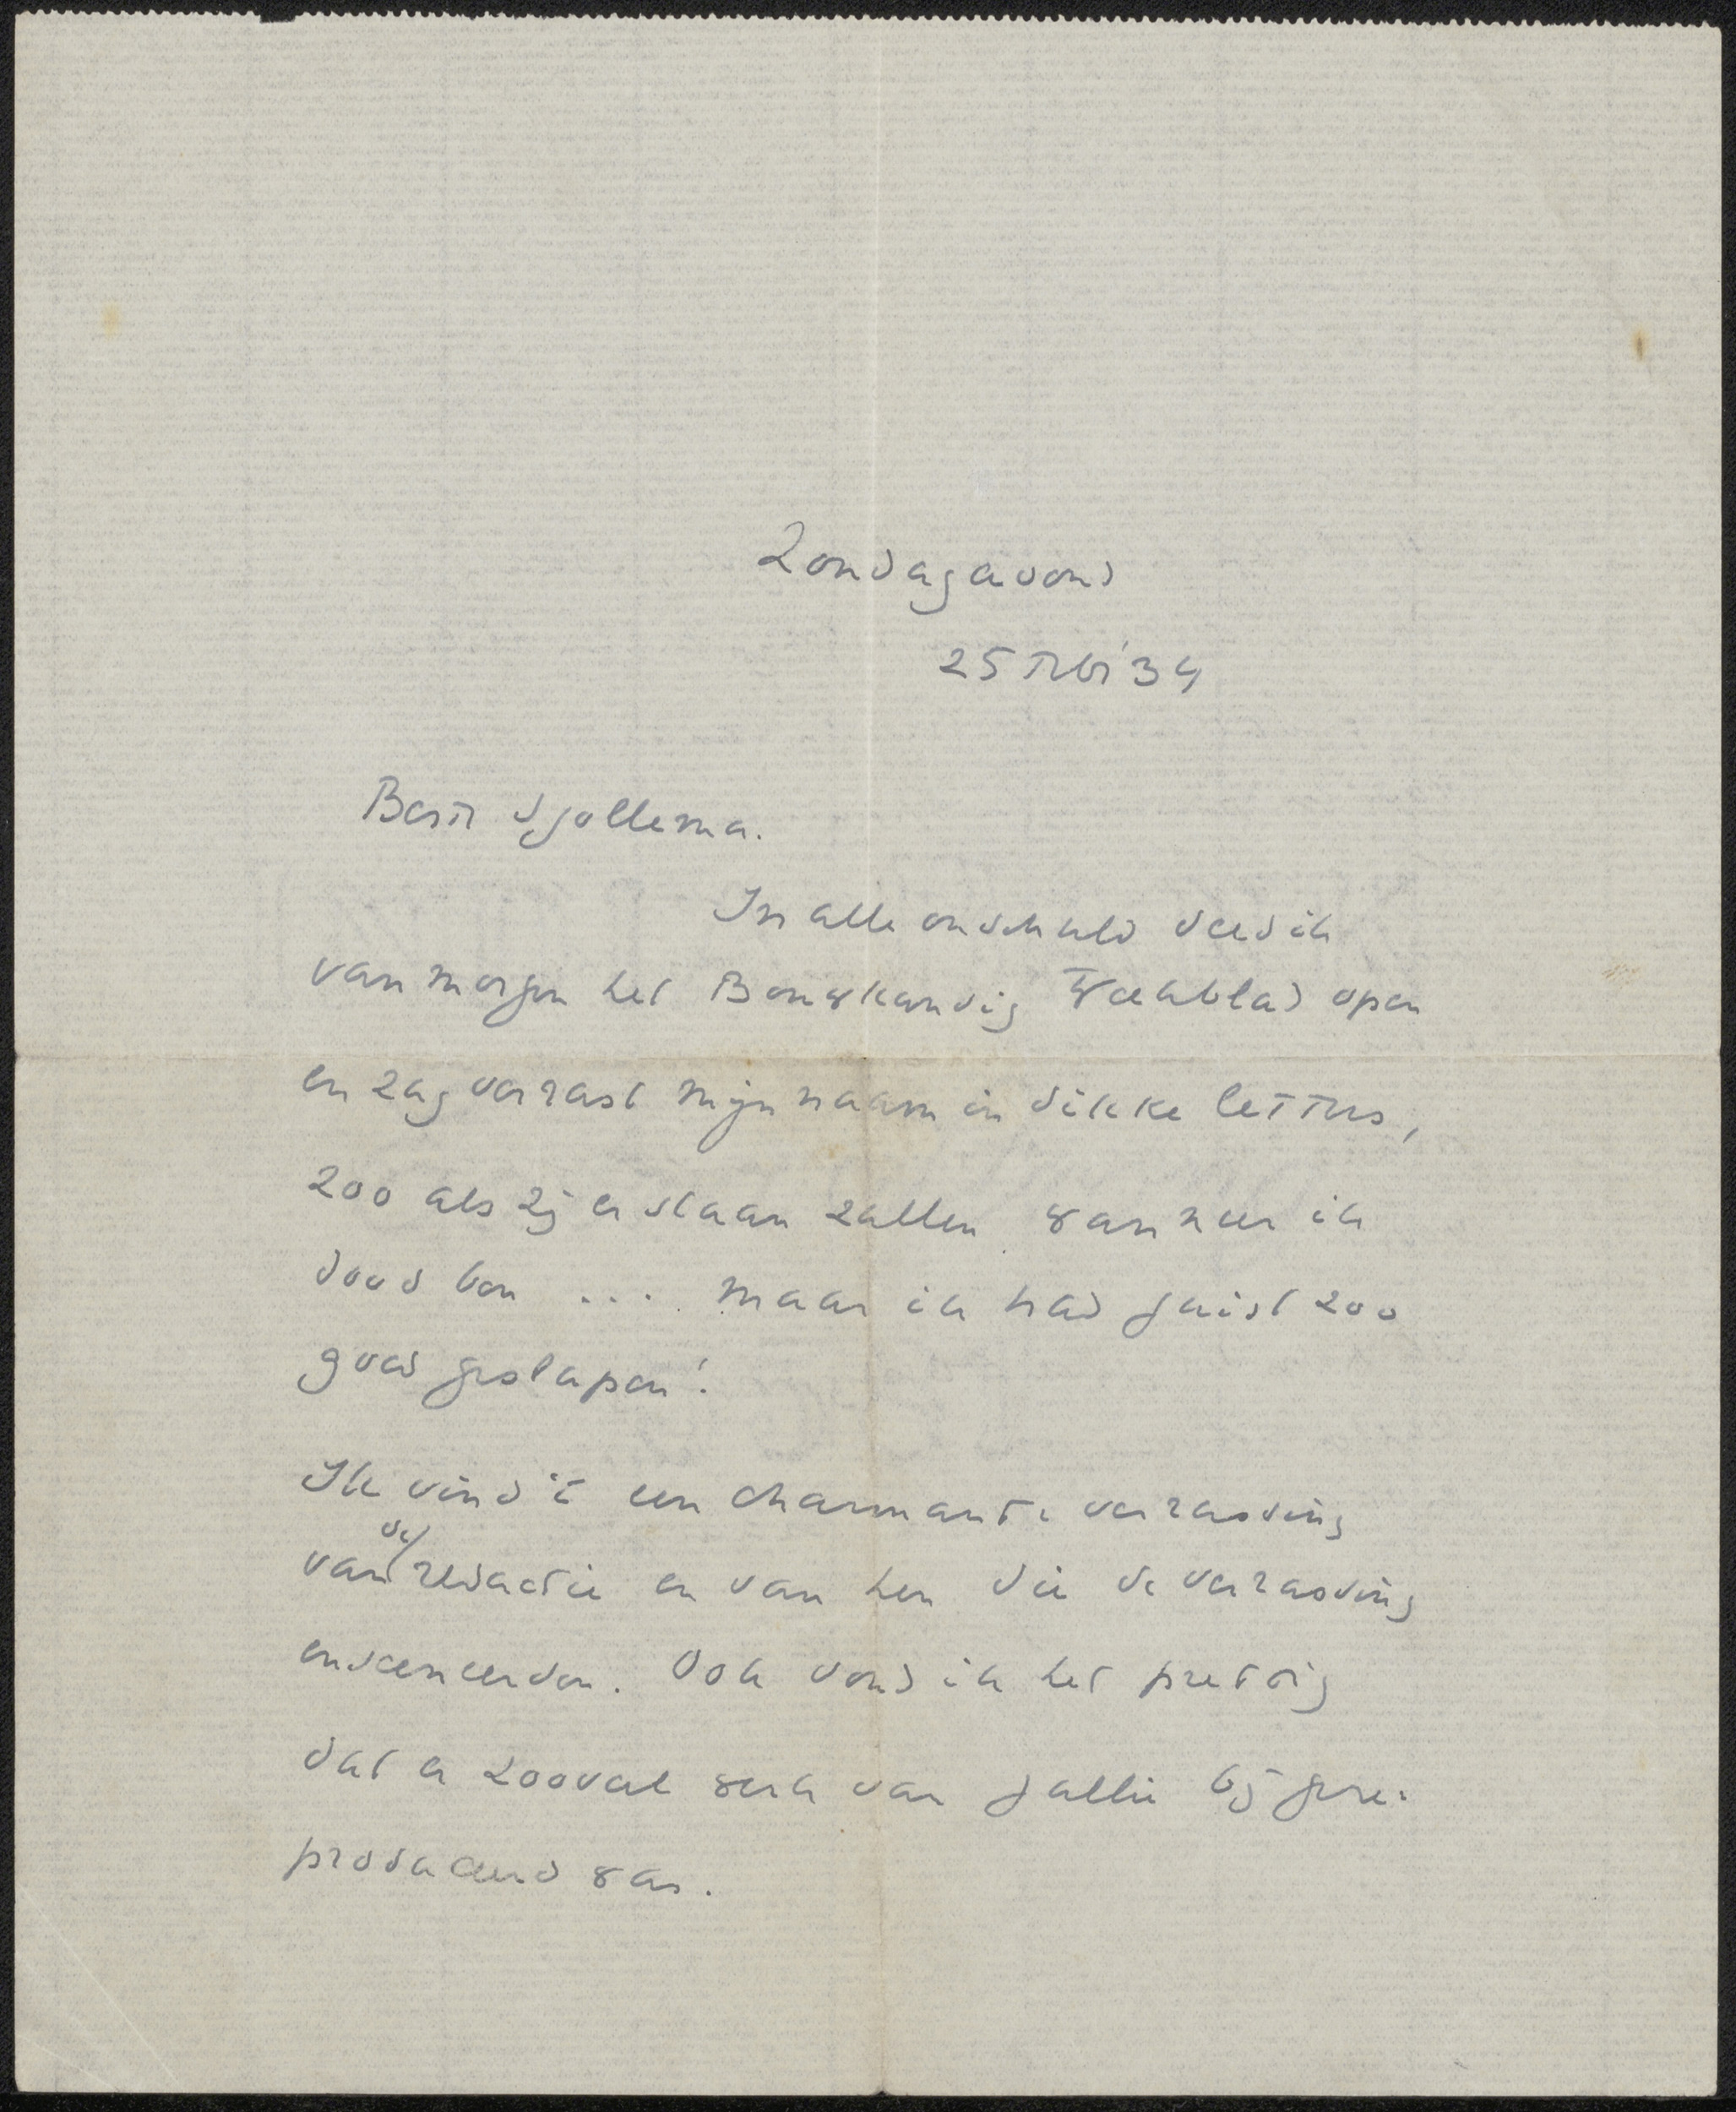 Zondagavond
25 Febr '34
Beste Sjollema.
In alle onschuld deed ik
van morgen het Bouwkundig Weekblad open
en zag verrast mijn naam in dikke letters,
zoo als zij er staan zullen wanneer ik
dood ben .... maar ik had juist zoo
goed geslapen!
Ik vind 't een charmante verrassing
van de redactie en van hen die de verrassing
ensceneerden. Ook vond ik het prettig
dat er zooveel werk van jullie bij gere-
produceerd was.